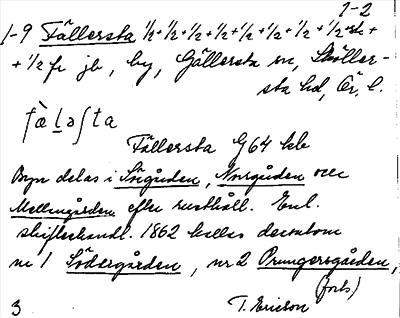 1-2
1-9 Fällersta ½+½+½+½+½+½+½+
+½ fr jb, by, Gällersta sn, Sköller-
sta hd, Ör. l.
Fällersta G64 kb
Byn delas i Sörgården, Norrgården och
Mellangården efter rusthåll. Enl.
skifteshandl. 1862 kallas dessutom
nr 1 Södergården, nr 2 Prungersgården,
(forts)
3 T. Ericson